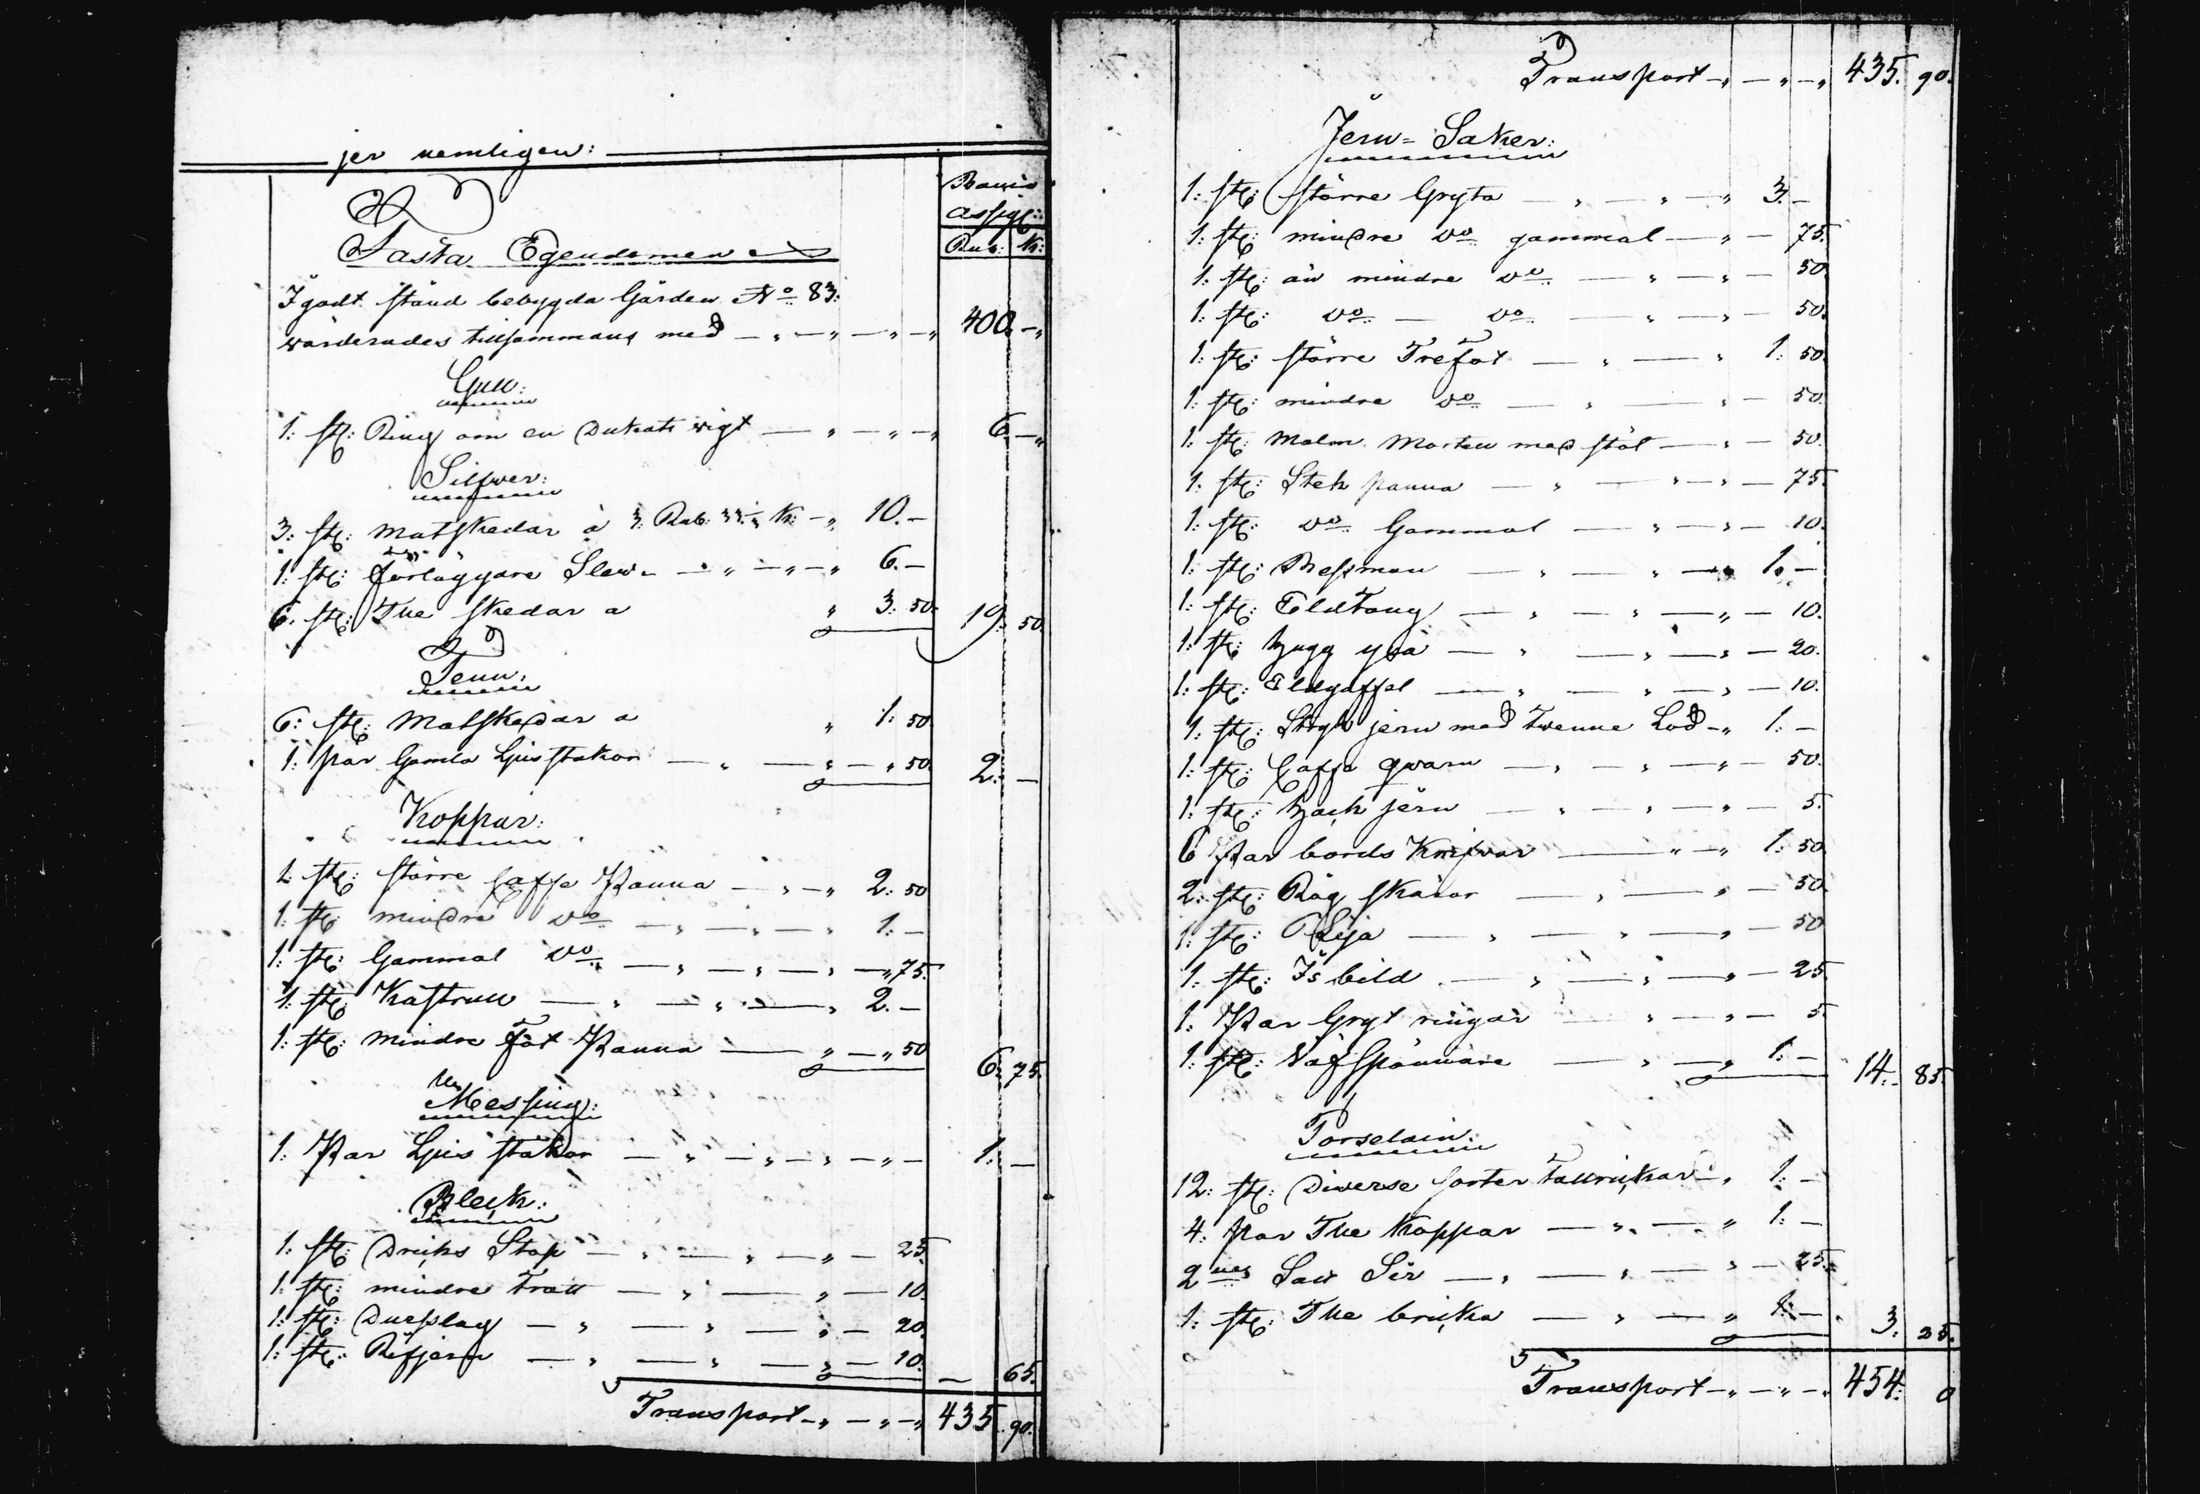 jer nemligen:
Banco
assign:
Rub: K:
Fasta Egendomen
I godt stånd bebygda Gården No 83:
värderades tillsammans med — „ — „ — „ — „ 400. — „
Gull:
1: st: Ring om en Dukats vigt — „ — „ — „ 6. — „
Silfwer:
3: st: Matskedar à 3: Rub: 33 K: — „ 10. —
1: st: förläggare Slew — „ — „ — „ 6. —
6: st: The skedar a „ 3: 50. 19: 50.
Tenn:
6: st: Matskedar a „ 1: 50.
1: par Gamla Ljusstakar — „ — „ — „ 50. 2: —
Koppar:
1: st: större Caffe Panna — „ — „ 2: 50
1: st: mindre do — „ — „ — „ 1: —
1: st: Gammal do — „ — „ — „ — „ 75.
1: st: Kastrull — „ — „ — „ 2. —
1: st: mindre fot Panna — „ — „ 50 6: 75.
Messing:
1: Par Ljus stakar — „ — „ — „ — „ — 1: —
Bleck:
1: st: Dricks Stop — „ — „ — „ — 25
1: st: mindre tratt — „ — „ — 10.
1: st: Durslag — „ — „ — „ — 20.
1: st: Rifjern — „ — „ — „ — 10. — 65.
Transport — „ — „ — „ 435 90.
Transport — „ — „ — „ 435. 90.
Jern=Saker:
1: st: större Gryta — „ — „ — „ 3. —
1: st: mindre do gammal — „ — 75.
1: st: än mindre do — „ — „ — 50
1: st: do — do — „ — „ — 50.
1: st: större Trefot — „ — „ 1: 50
1: st: mindre do — „ — „ — 50.
1: st: Malm Mortel med stöt — „ — 50.
1: st: Stek panna — „ — „ — „ — 75.
1: st: do Gammal — „ — „ — 10.
1: st: Bessman — „ — „ — „ 1. —
1: st: Eldtång — „ — „ — „ — 10.
1: st: hugg yxa — „ — „ — „ — 20.
1: st: Eldgaffel — „ — „ — „ — 10.
1: st: Stryk jern med Twenne Lod — „ 1: —
1: st: Caffe qwarn — „ — „ — „ — 50.
1: st: hack jern — „ — „ — „ — 5.
6 Par bords Knifvar — „ — „ 1: 50.
2: st: Råg skäror — „ — „ — 50
1: st: Lija — „ — „ — „ — 50
1: st: Is bild — „ — „ — „ — 25.
1: Par Gryt ringar — „ — „ — 5.
1: st: Väfspännare — „ — „ 1: — 14: 85.
Porselain:
12: st: Diverse sorter Tallrickar — „ 1: —
4: par The Koppar — „ — „ 1: —
2ne — „ — „ — „ — 25.
1: st: The bricka — „ — „ 1: — 3. 25.
Transport — „ — „ — „ 454: 0